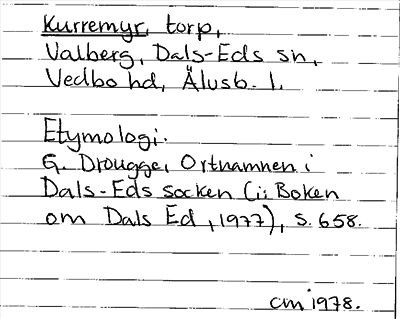 Kurremyr, torp,
Valberg, Dals-Eds sn,
Vedbo hd, Älvsb. l.
Etymologi:
G. Drougge, Ortnamnen i
Dals-Eds socken (i: Boken
om Dals Ed, 1977), s. 658.
cm 1978.